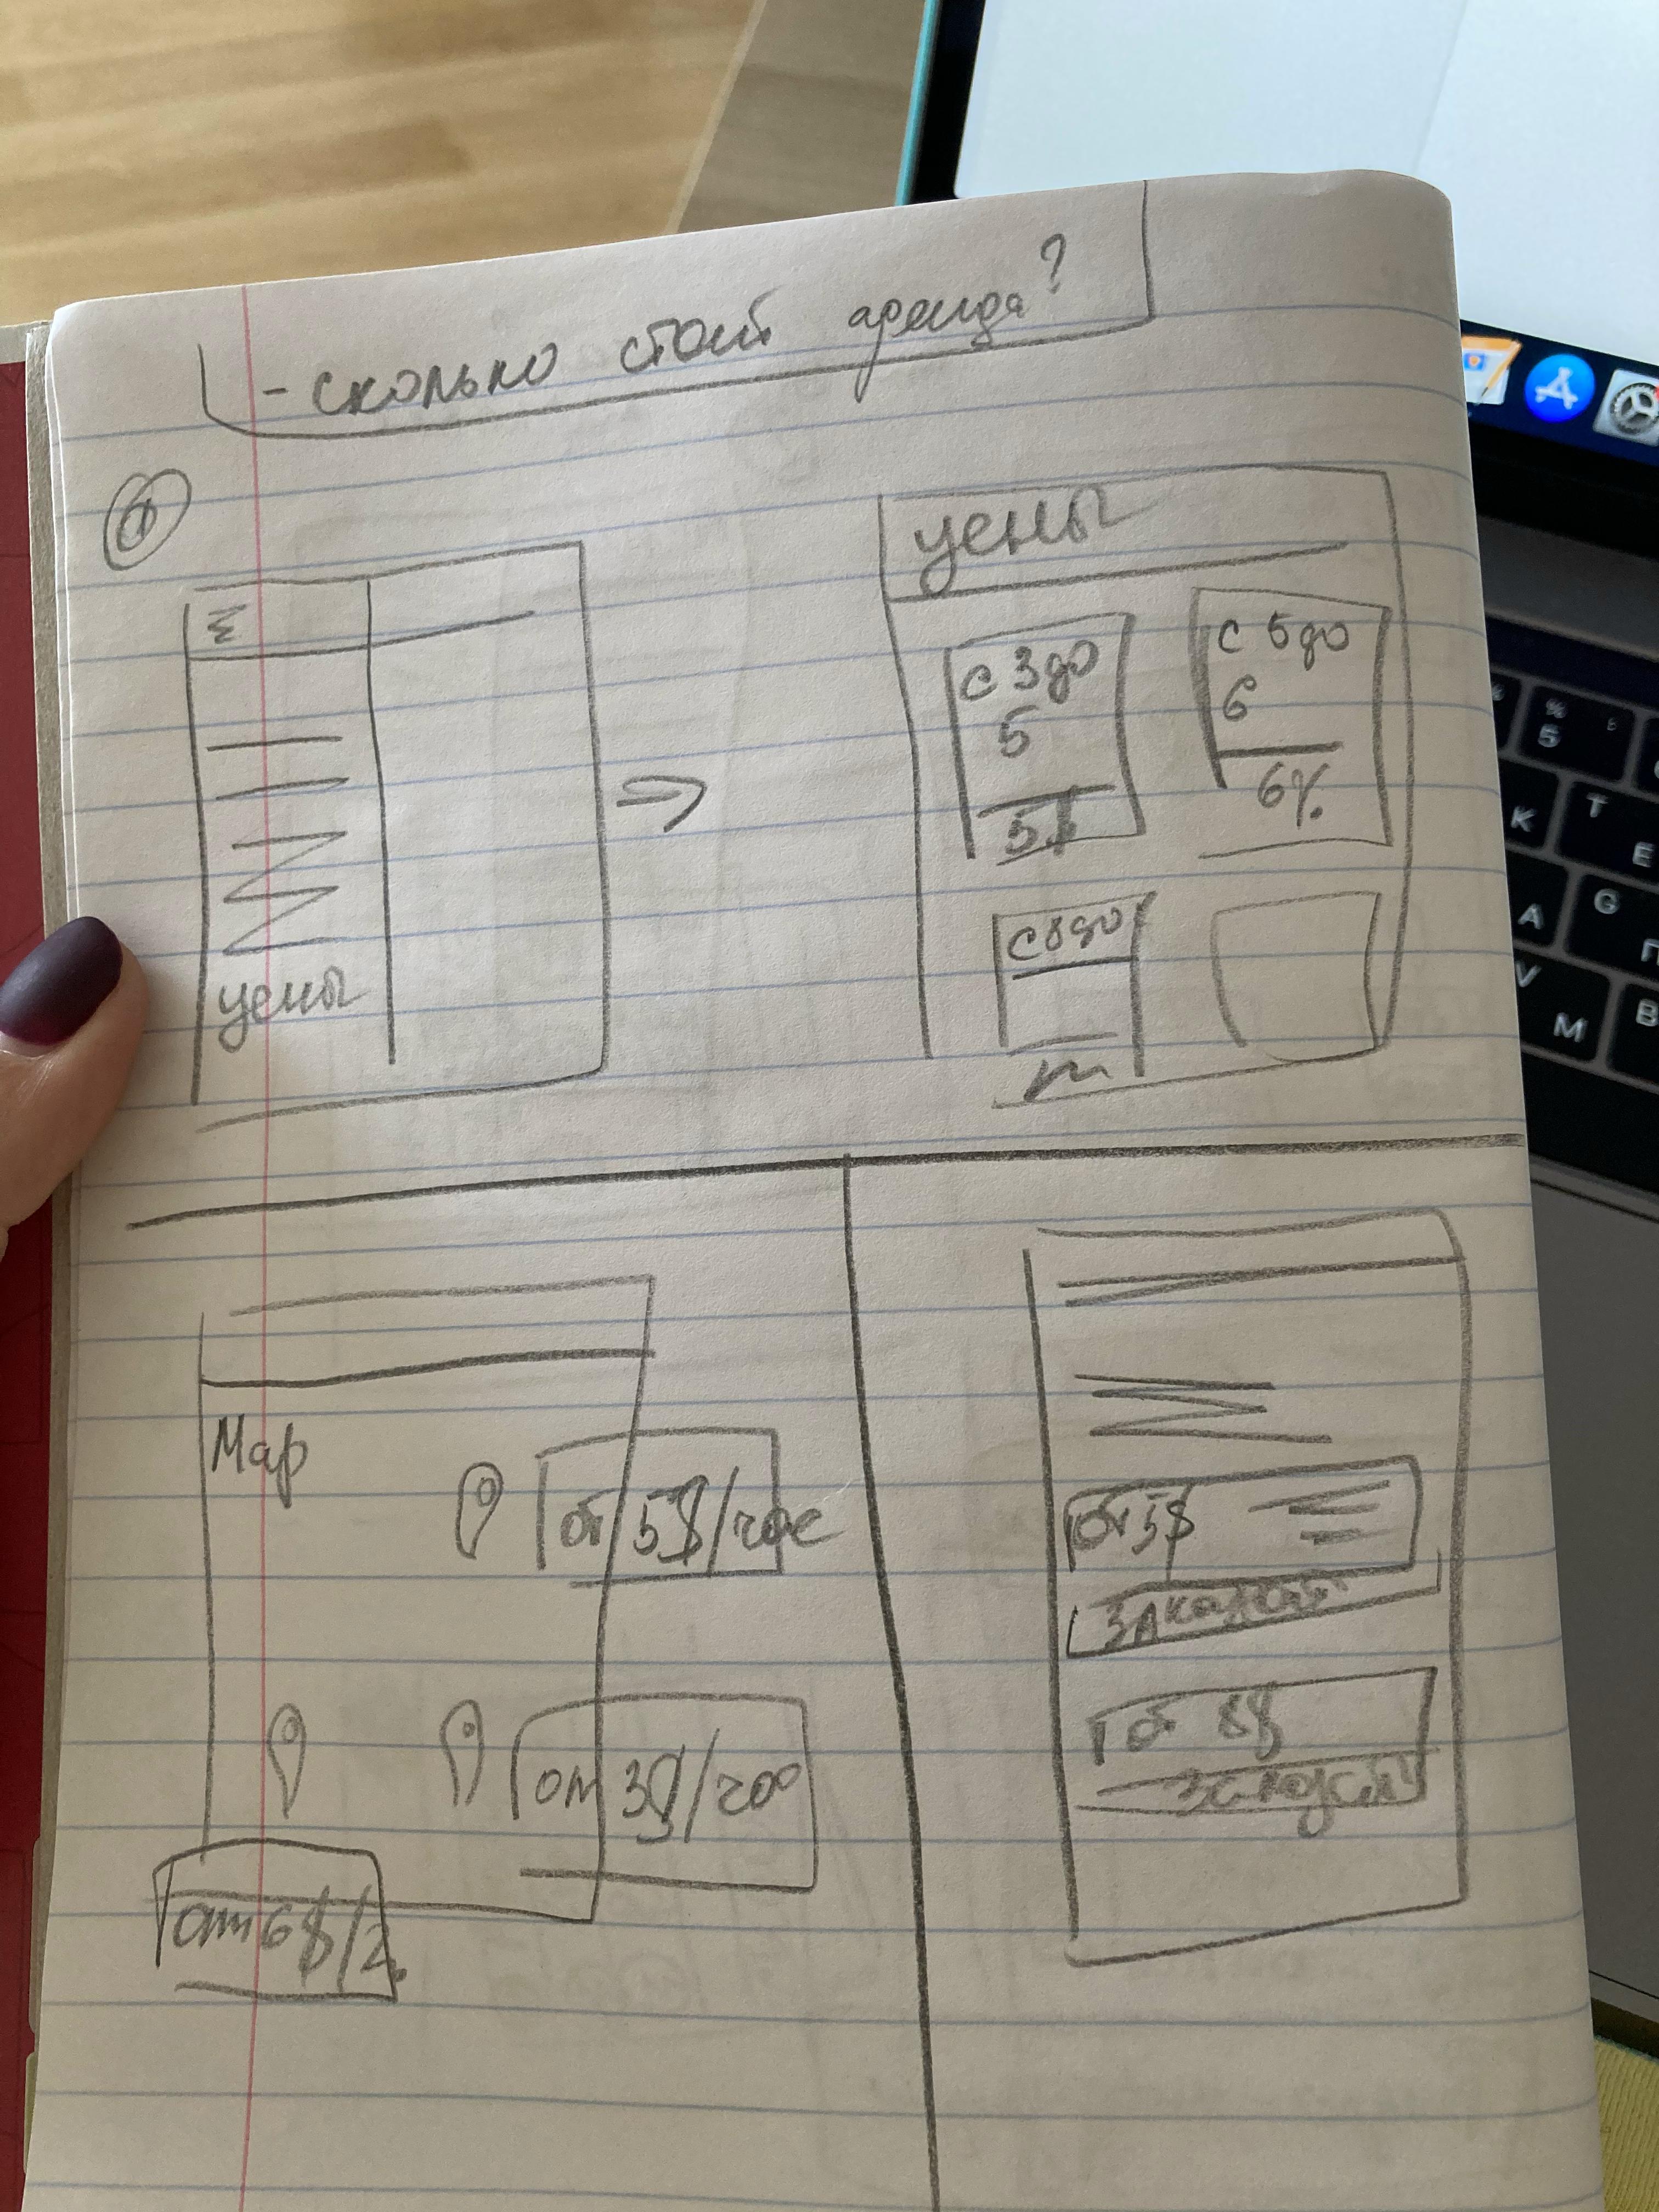 - сколько стоит аренда?
1
цены
цены
с 3 до
5
5$
с 5 до
6
6%
с 8 до
Map
от 5$/час
от 3$/час
от 6$/г.
от 5$
заказать
от 8$
%
5
K
T
E
A
G
П
V
M
B